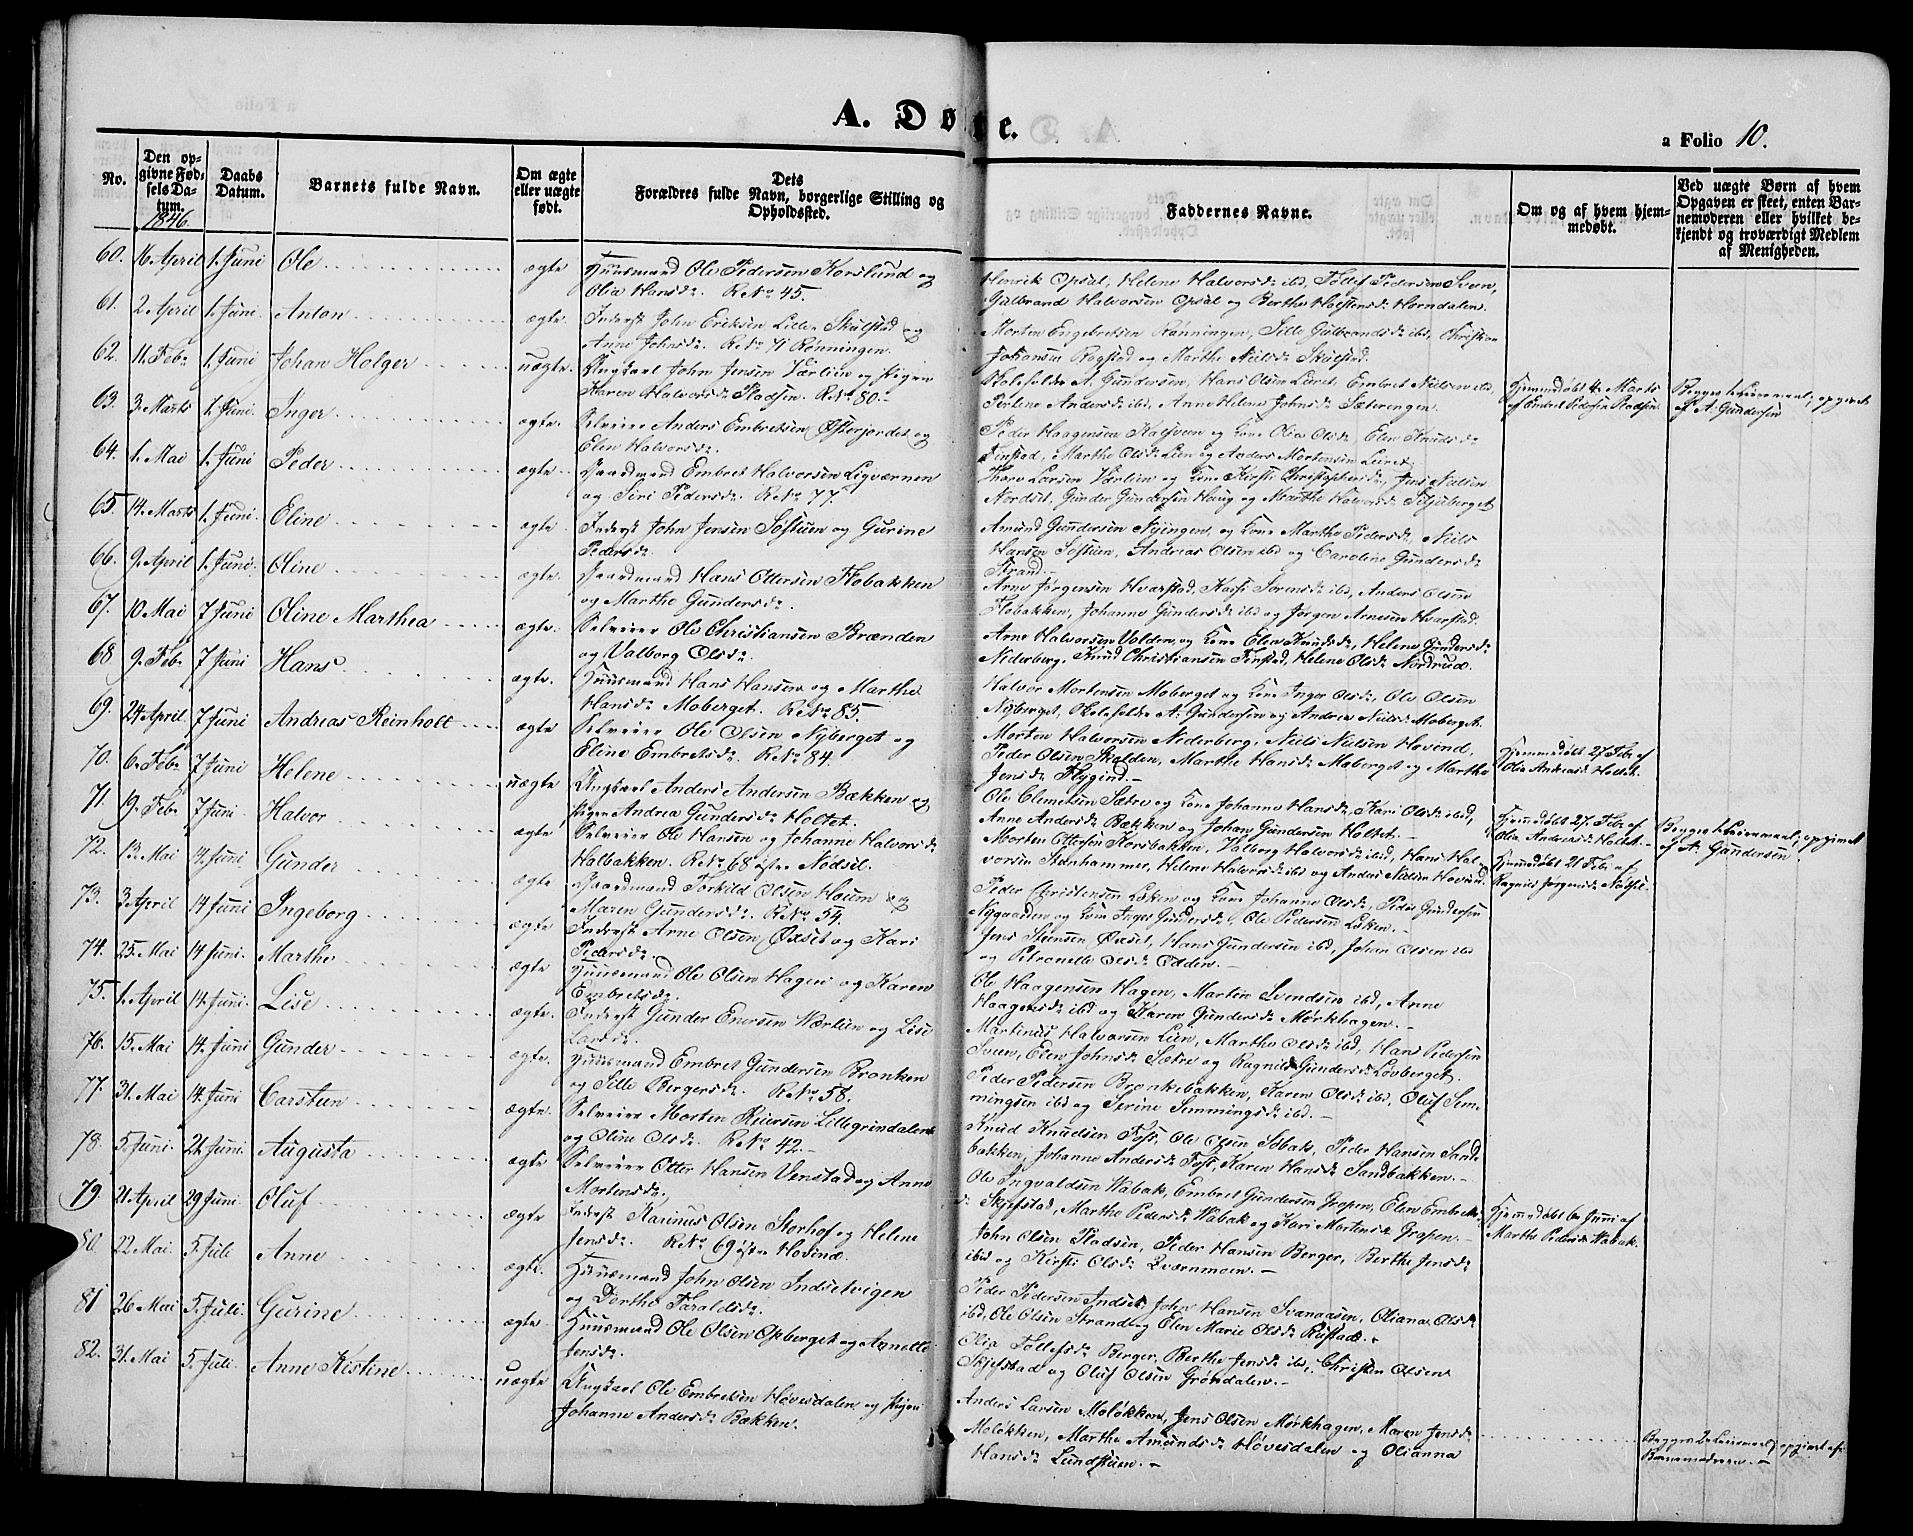 A. Døbte.
a Folio 10.
No.
Den op-
givne Fød-
sels Da-
tum.
1846.
Daabs
Datum.
Barnets fulde Navn.
Om ægte
eller uægte
født.
Dets
Forældres fulde Navn, borgerlige Stilling og
Opholdssted.
Faddernes Navne.
Om og af hvem hjem-
medøbt.
Ved uægte Børn af hvem
Opgaven er skeet, enten Bar-
nemoderen eller hvilket be-
kjendt og troværdigt Medlem
af Menigheden.
60. 16 April 1. Juni Ole ægte Huusmand Ole Pedersen Korslund og
Olia Hansdr. ReNr 45.
Henrik Opsal, Helene Halvorsdr ibd, Tollef Pedersen Sveen,
Gulbrand Halvorsen Opsal og Berthe Holstensdr Horndalen.
61. 2 April 1. Juni Anton ægte. Inderst John Eriksen Lille Skulstad og
Anne Johnsdr. ReNr 71 Rønningen.
Morten Engebretsen Rønningen, Sille Gulbrandsdr ibd, Christian
Johansen Rogstad og Marthe Nielsdr Skulstad.
62. 11. Febr 1. Juni Johan Holger uægte. Ungkarl John Jensen Værlien og Pigen
Karen Halvorsdr Stadsen. ReNr 80.
A. Gundersen, Hans Olsen Leiret, Embret Nielsen ibd,
Perlene Andersdr ibd, Anne Helene Johnsdr Sæterengen.
Hjemmedøbt 4. Marts
af Embret Pedersen Stadsen.
Begges 1. Leiermaal, opgivet
af A. Gundersen
63. 3. Marts 1. Juni Inger ægte. Selveier Anders Embretsen Østerjordet og
Elen Halvorsdr.
Peder Haagensen Kalsveen og Kone Olia Olsdr, Elen Knudsdr
Finstad, Marthe Olsdr Lien og Anders Mortensen Leiret
64. 1. Mai 1. Juni Peder ægte. Gaardmand Embret Halvorsen Ligværnen
og Siri Pedersdr. ReNr 77.
Thore Larsen Værlien og Kone Kirsti Christophersdr, Jens Nielsen
Nordset, Gunder Gundersen Hovig og Marthe Halvorsdr
65. 14. Marts 1. Juni Eline ægte. Inderst John Jensen Søstuen og Gurine
Pedersdr.
Amund Gundersen Nyingen og Kone Marthe Pedersdr, Niels
Hansen Søstuen, Andreas Olsen ibd og Caroline Gundersdr
Strand.
66. 9. April 1. Juni Oline ægte. Gaardmand Hans Ottersen Flobakken
og Marthe Gundersdr.
Arne Jørgensen Hvarstad, Kari Sørensdr ibd, Anders Olsen
Flobakken, Johanne Gundersdr ibd og Jørgen Arnesen Hvarstad.
67. 10 Mai 7 Juni Oline Marthea ægte. Selveier Ole Christiansen Brænden
og Valborg Olsdr.
Arne Halvorsen Volden og Kone Elen Knudsdr, Helene Gundersdr
Nederberg, Knud Christiansen Finstad, Helene Olsdr Nordrud.
68 9. Febr 7 Juni Hans ægte. Huusmand Hans Hansen og Marthe
Hansdr Moberget. ReNr 85.
Halvor Mortensen Moberget og Kone Inger Olsdr, Ole Olsen
Nyberget, A. Gundersen og Andrea Nielsdr Moberget.
69. 24 April 7 Juni Andreas Reinholt ægte Selveier Ole Olsen Nyberget og
Eline Embretsdr. ReNr 84.
Morten Halvorsen Nederberg, Niels Nielsen Hovind,
Peder Olsen Skolden, Marthe Hansdr Moberget og Marthe
Jensdr Flygind.
Hjemmedøbt 27. Febr af
Olia Andreasdr Holtet.
70. 6. Febr 7 Juni Helene uægte Ungkarl Anders Andersen Bækken og
Pigen Andrea Gundersdr Holtet.
Ole Clemetsen Sætre og Kone Johanne Hansdr, Kari Olsdr ibd,
Anne Andersdr Bækken og Johan Gundersen Holtet.
Hjemmedøbt 27. Febr af
Olia Andreasdr Holtet.
Begges 1. Leiermaal, opgivet
af A. Gundersen.
71. 19. Febr 7 Juni Halvor ægte Selveier Ole Hansen og Johanne Halvorsdr
Halbakken. ReNr 68 østre Nødsil.
Morten Ottersen Korsbakken, Valborg Halvorsdr ibid, Hans Hal-
vorsen Stenhammer, Helene Halvorsdr ibd og Andrea Nielsen Hovind.
Hjemmedøbt 21 Febr af
Ragnild Jørgensdr Nødsil.
72. 13. Mai 14. Juni Gunder ægte Gaardmand Torkild Olsen Houm og
Maren Gundersdr. ReNr 54.
Peder Christensen Løken og Kone Johanne Olsdr, Peder Gundersen
Nygaarden og Kone Inger Gundersdr, Ole Pedersen Løken.
73. 3 April 14 Juni Ingeborg ægte Inderst Arne Olsen Øxset og Kari
Pedersdr.
Jens Steensen Øxset, Hans Gundersen ibd, Johan Olsen ibd
og Petronelle Olsdr Odden.
74. 25. Mai 14 Juni. Marthe ægte Huusmand Ole Olsen Hagen og Karen
Embretsdr.
Ole Haagensen Hagen, Martin Svendsen ibd, Anne
Haagensdr ibd og Karen Gundersdr Mørkhagen.
75. 1. April 14. Juni. Lise ægte. Inderst Gunder Enersen Værlien og Lise
Larsdr.
Martinus Halvorsen Lien, Marthe Olsdr ibd, Hans Pedersen
Sveen, Elen Johnsdr Sætre og Ragnild Gundersdr Løvberget.
76. 15. Mai 14. Juni Gunder ægte. Huusmand Embret Gundersen Bronken
og Sille Bergersdr. ReNr 58.
Peder Pedersen Bronkebakken, Karen Olsdr ibd, Oluf Sem-
mingsen ibd og Serine Semmingsdr ibd.
77. 31. Mai 14. Juni Carsteen ægte Selveier Morten Reiersen Lillegrindalen
og Oline Olsdr. ReNr 42.
Knud Knudsen Foss, Ole Olsen Sobak, Peder Hansen Sand-
bakken, Johanne Andersdr Foss, Karen Hansdr Sandbakken.
78. 5. Juni. 21. Juni. Augusta ægte Selveier Otter Hansen Venstad og Anne
Mortensdr.
Ole Ingvaldsen Wabak, Embret Gundersen Gropen, Elen Embrets-
dr Skjefstad, Marthe Pedersdr Wabak og Kari Mortensdr Gropen.
Hjemmedøbt 6. Juni af
Marthe Pedersdr Wabak.
79. 21 April 29 Juni. Oluf ægte Inderst Karinus Olsen Storhof og Helene
Jensdr. ReNr 69 østre Hovind.
John Olsen Stadsen, Peder Hansen Berger, Berthe Jensdr
ibid og Kirsti Olsdr Qværnmoen.
80. 22 Mai. 5. Juli Anne ægte. Huusmand John Olsen Indsetvigen
og Dorthe Taraldsdr.
Peder Pedersen Indset, John Hansen Svenaasen, Oliana Olsdr
ibd, Ole Olsen Strand og Elen Marie Olsdr Rustad.
81 26 Mai 5. Juli. Gurine ægte. Huusmand Ole Olsen Opberget og Agnette
Jensdr.
Olia Tollefsdr Berger, Berthe Jensdr ibd, Christen Olsen
Skjefstad og Oluf Olsen Grøndalen.
82. 31. Mai 5. Juli. Anne Kistine uægte Ungkarl Ole Embretsen Høvesdalen og Pigen
Johanne Andersdr Bakken.
Anders Larsen Moløkken, Jens Olsen Mørkhagen, Maren Jensdr
Moløkken, Marthe Amundsdr Høvesdalen og Olianna
Hansdr Lundstuen.
Begges 2. Leiermaal, opgivet af
Barnemoderen.